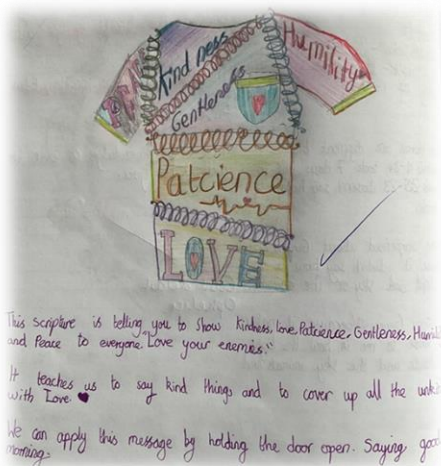 Kindness
Humility
Gentleness
Patcience
LOVE
This scripture is telling you to show kindness, love Patcience, Gentleness, Humili
and Peace to everyone. "Love your enemies."
It teaches us to say kind things and to cover up all the unki
with Love ♥
We can apply this message by holding the door open. Saying good
morning.